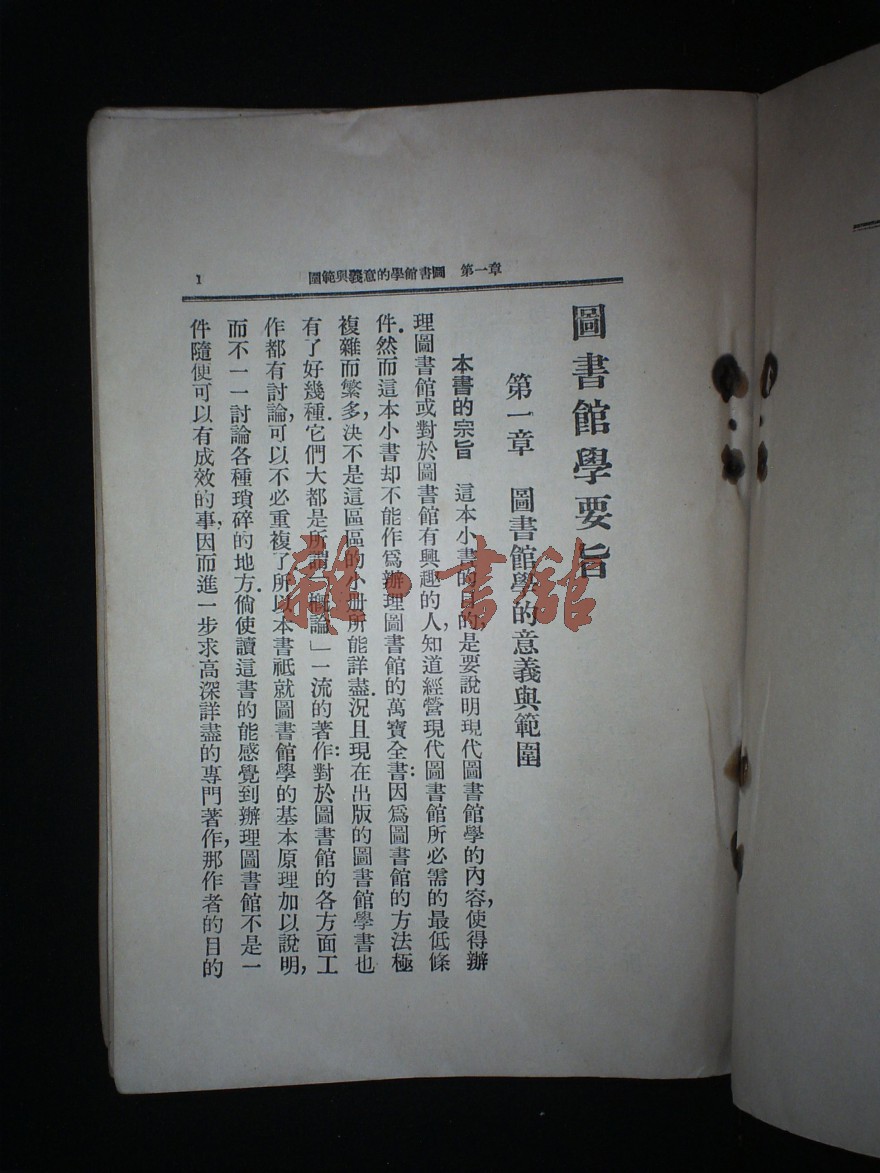 第一章 圖書館學的意義與範圍 1
圖書館學要旨
第一章 圖書館學的意義與範圍
本書的宗旨 這本小書的目的,是要說明現代圖書館學的內容,使得辦
理圖書館或對於圖書館有興趣的人,知道經營現代圖書館所必需的最低條
件.然而這本小書却不能作爲辦理圖書館的萬寶全書:因爲圖書館的方法極
複雜而繁多,決不是這區區的小册所能詳盡.況且現在出版的圖書館學書也
有了好幾種.它們大都是所謂「概論」一流的著作:對於圖書館的各方面工
作都有討論,可以不必重複了.所以本書祇就圖書館學的基本原理加以說明,
而不一一討論各種瑣碎的地方.倘使讀這書的能感覺到辦理圖書館不是一
件隨便可以有成效的事,因而進一步求高深詳盡的專門著作,那作者的目的
雜·書館